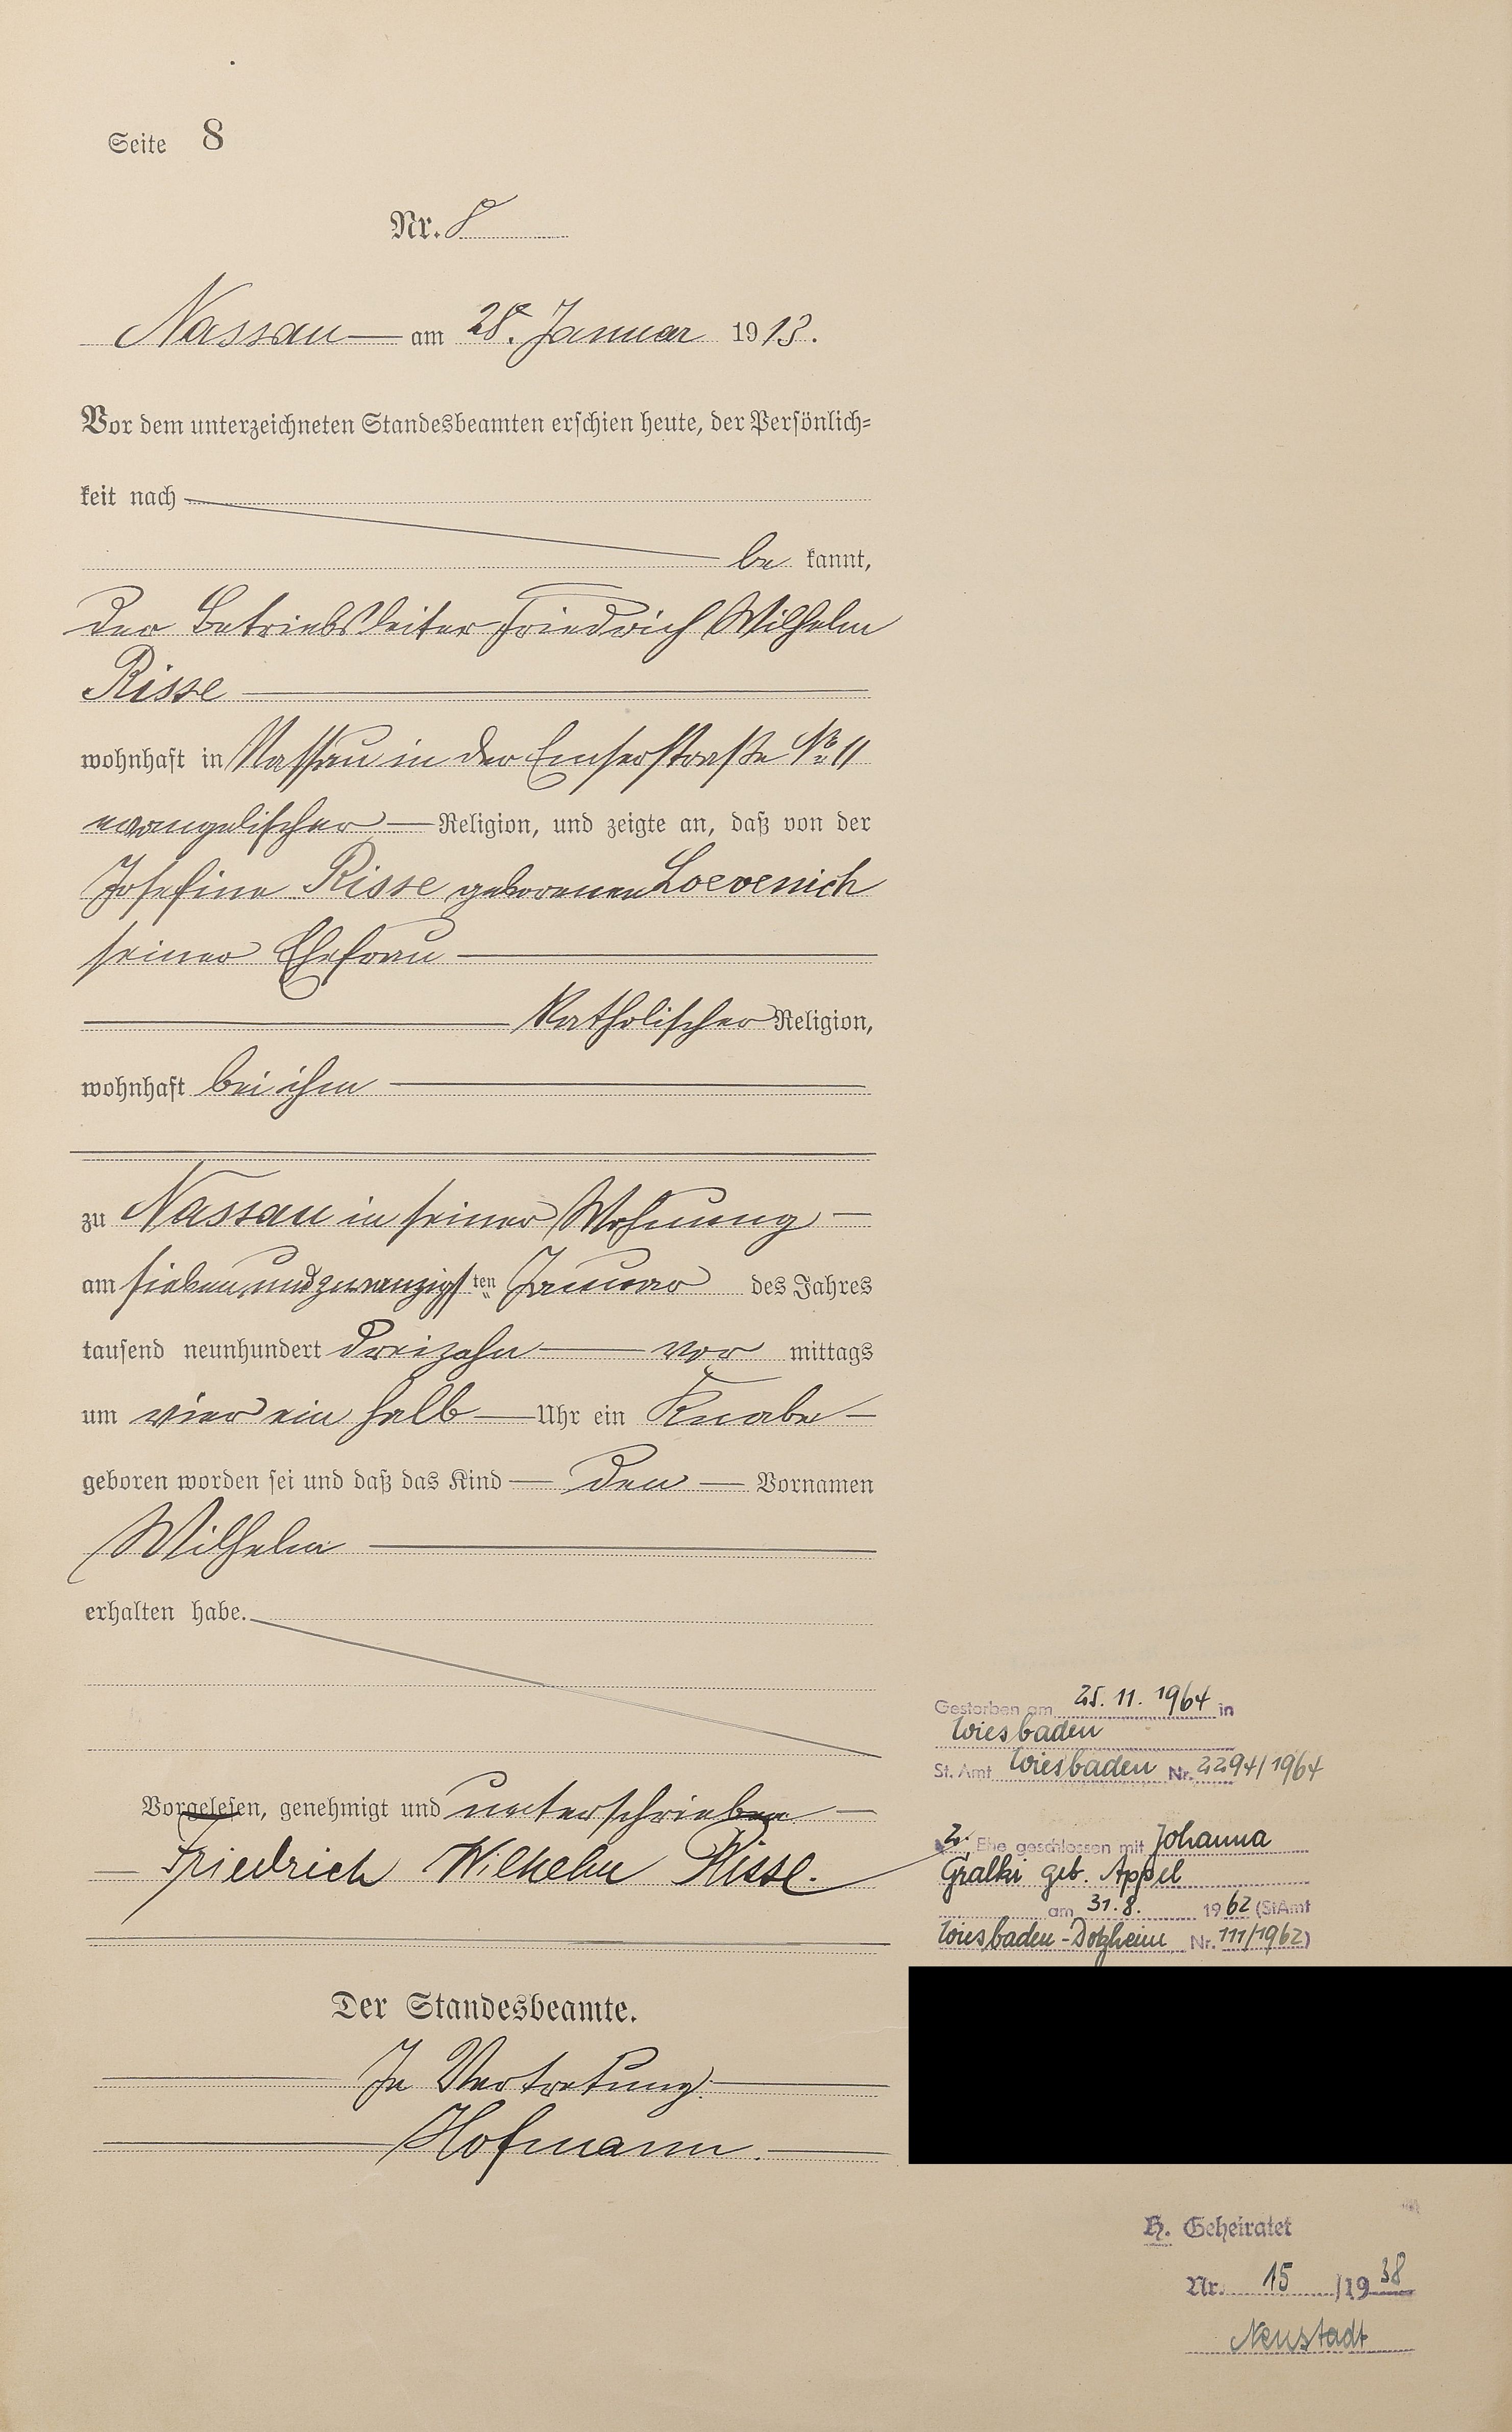 Seite 8
Nr. 8
Nassau am 28. Januar 1913.
Vor dem unterzeichneten Standesbeamten erschien heute, der Persönlich-
keit nach
be kannt,
der Betriebsleiter Friedrich Wilhelm
Risse
wohnhaft in Nassau in der Emserstraße No 11
evangelischer Religion, und zeigte an, daß von der
Josefine Risse geborenen Loevenich
seiner Ehefrau
katholischer Religion,
wohnhaft bei ihm
zu Nassau in seiner Wohnung
am siebenundzwanzigsten Januar des Jahres
tausend neunhundert dreizehn vor mittags
um vier ein halb Uhr ein Knabe
geboren worden sei und daß das Kind den Vornamen
Wilhelm
erhalten habe.
Vorgelesen, genehmigt und unterschrieben
Friedrich Wilhelm Risse.
Der Standesbeamte.
In Vertretung.
Hofmann.
Gestorben am 25. 11. 1964 in
Wiesbaden
St. Amt Wiesbaden Nr. 2294/1964
2. Ehe geschlossen mit Johanna
Gralki geb. Appel
am 31. 8. 1962 (StAmt
Wiesbaden-Dotzheim Nr. 111/1962)
H. Geheiratet
Nr. 15 /1938
Neustadt